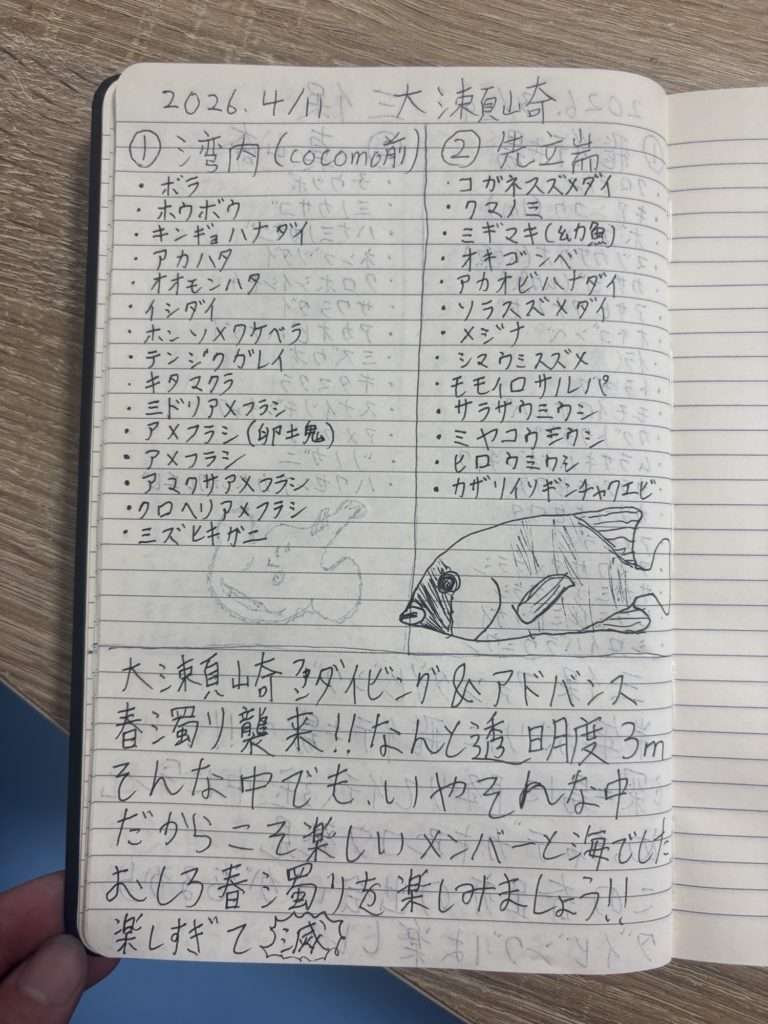 2026.4/11 大瀬崎
① 湾内(cocomo前)
・ボラ
・ホウボウ
・キンギョハナダイ
・アカハタ
・オオモンハタ
・イシダイ
・ホンソメワケベラ
・テンジクガレイ
・キタマクラ
・ミドリアメフラシ
・アメフラシ(卵塊)
・アメフラシ
・アマクサアメフラシ
・クロヘリアメフラシ
・ミズヒキガニ
② 先端
・コガネスズメダイ
・クマノミ
・ミギマキ(幼魚)
・オキゴンベ
・アカオビハナダイ
・ソラスズメダイ
・メジナ
・シマウミスズメ
・モモイロサルパ
・サラサウミウシ
・ミヤコウミウシ
・ヒロウミウシ
・カザリイソギンチャクエビ
大瀬崎 ダイビング&アドバンス
春濁り襲来!!なんと透明度3m
そんな中でも、いやそんな中
だからこそ楽しいメンバーと海でした
むしろ春濁りを楽しみましょう!!
楽しすぎて 滅